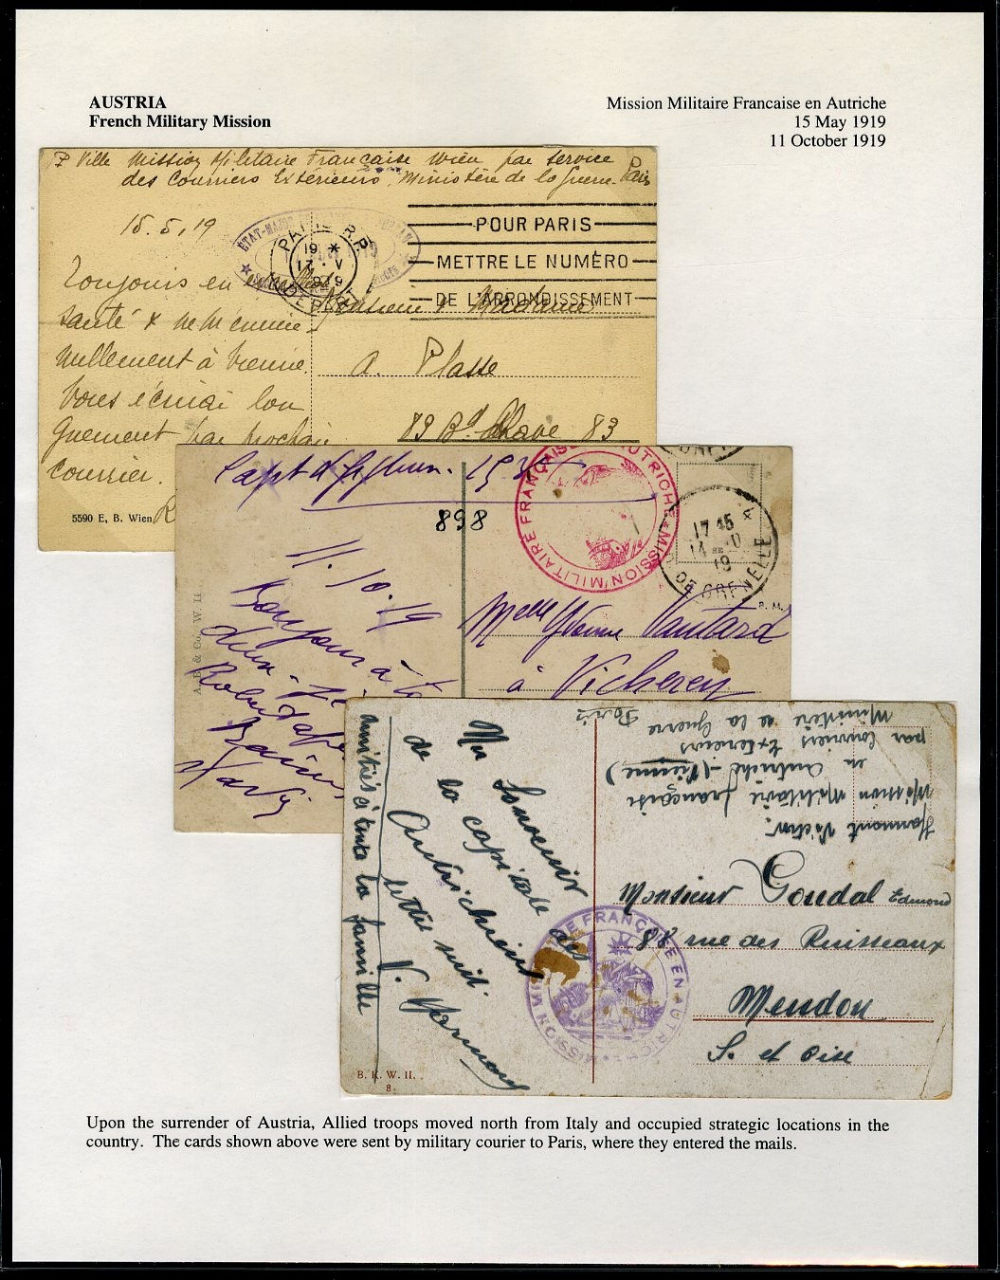 AUSTRIA
French Military Mission
Mission Militaire Francaise en Autriche
15 May 1919
11 October 1919
Ville Mission Militaire Française Wien par service
des Courriers Extérieurs, Ministère de la Guerre. Paris
15.5.19
PARIS R.P.
19 *
17 · V
DEPART
POUR PARIS
METTRE LE NUMÉRO
DE L'ARRONDISSEMENT
Toujours en
santé &
nullement à Vienne.
Vous écrirai lon
guement par prochain
courrier.
Monsieur & Madame
A. Plasse
83 Bd 83
5590 E, B. Wien
Capt
898
MISSION MILITAIRE FRANÇAISE AUTRICHE
17 45
14 - 10
19
DE GRENELLE
11.10.19
Bonjour à
Melle Yvonne Vautard
à Vicherey
Harmant Victor.
Mission Militaire française
en Autriche (Vienne)
par Courriers Exterieurs
Ministère de la Guerre
Paris
Un Souvenir
de la capitale
Autrichienne
lettre suit.
V. Harmant
amitiés à toute la famille
Monsieur Goudal Edmond
88 rue des Ruisseaux
Meudon
S. et Oise
MISSION MILITAIRE FRANÇAISE EN AUTRICHE
B. K. W. II.
8
Upon the surrender of Austria, Allied troops moved north from Italy and occupied strategic locations in the
country. The cards shown above were sent by military courier to Paris, where they entered the mails.